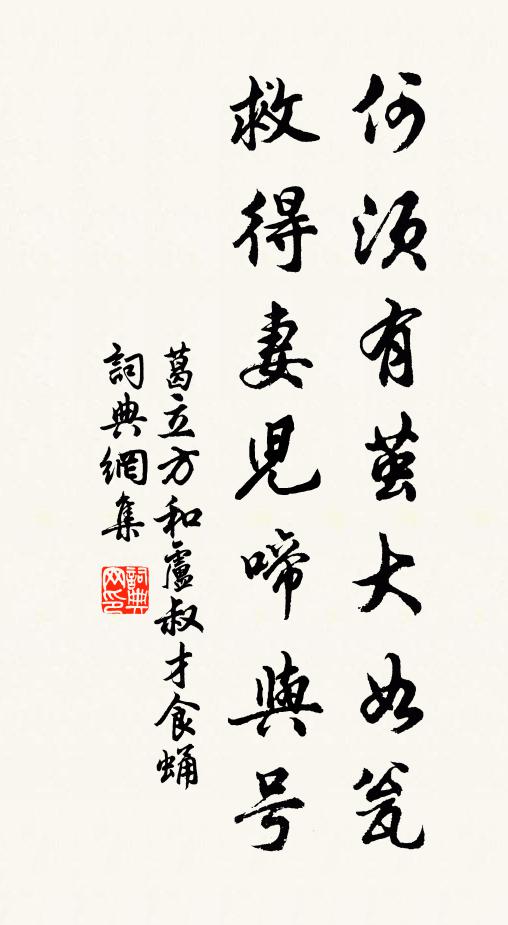 何須有茧大如瓮
救得妻児啼與号
葛立方和盧叔才食蛹
詞典網集
詞典
网印